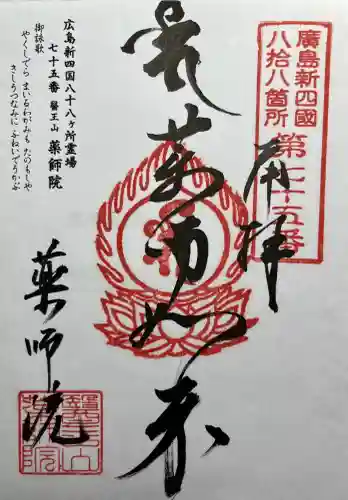 廣島新四國
八拾八箇所
第七十五番
奉拝
薬師如来
薬師院
広島新四国八十八ヶ所霊場
七十五番 醫王山 薬師院
御詠歌
やくしでら まいるわかみも たのもしや